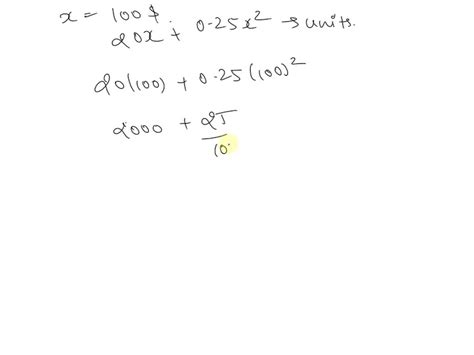 x = 100 $.
20x + 0.25x² → units.
20(100) + 0.25(100)²
2000 + 25
10